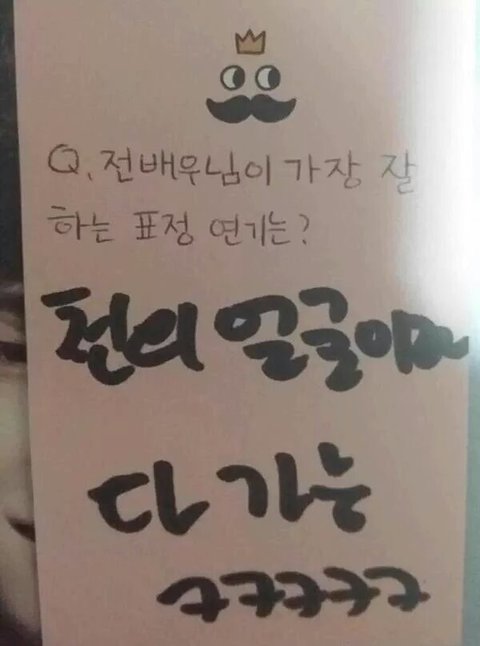 Q. 전배우님이 가장 잘
하는 표정 연기는?
천의 얼굴이라
다 가능
ㅋㅋㅋㅋㅋ